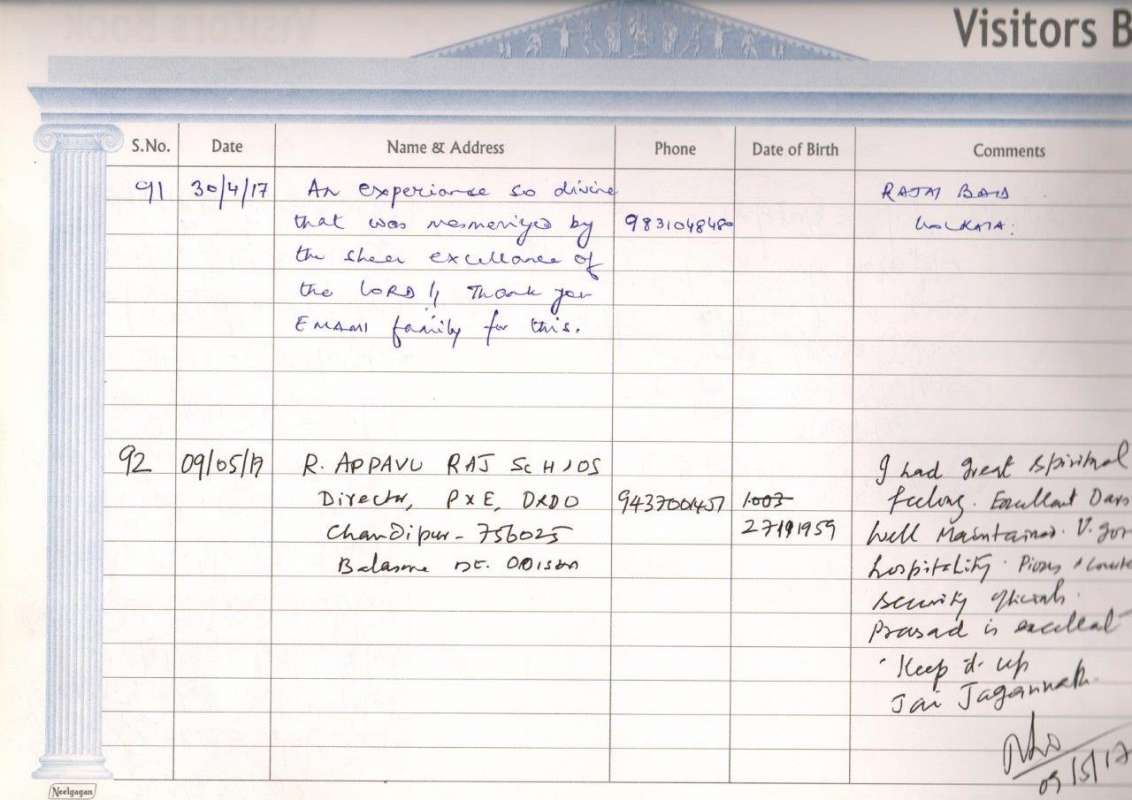 Visitors B
S.No. Date Name & Address Phone Date of Birth Comments
91 30/4/17 An experiance so divine RAJAJ BAID
that was mesmerized by 9831048480 KOLKATA.
the sheer excellance of
the LORD !! Thank you
EMAMI family for this.
92 09/05/17 R. APPAVU RAJ SC H, JOS I had great Spiritual
Director, PXE, DRDO 9437001457 1003 feeling. Excellent Dars
Chandipur - 756025 27/9/1959 Well Maintained. V. goo
Balasore DT. ODISHA hospitality. Pious &
Security officials.
Prasad is excellent
Keep it up
Jai Jagannath
09/5/17
Neelgagan